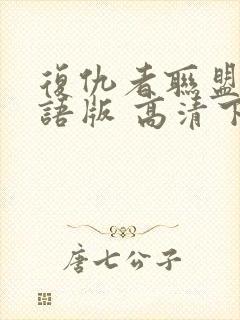 復仇者聯盟
語版 高清下
唐七公子